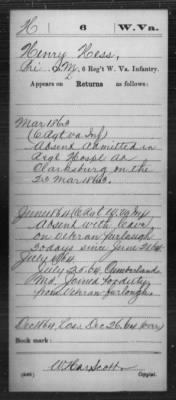 H 6 W.Va.
Henry Hess,
Pri. Co. M, 6 Reg't W. Va. Infantry.
Appears on
Returns as follows:
Mar 1863
(6 Regt Va Inf)
Absent Admitted in
Regt Hospl at
Clarksburg on the
23 Mar 1863.
June 1864 (6 Regt W Va Inf)
Absent with leave
on Veteran furlough
30 days since June 21 64
July 1864
July 25, 64, Cumberland
Md, Joined for duty
from Veteran furlough
Dec 1864, Loss Dec 26, 64
Book mark:
W Har Scott
(546) Copyist.